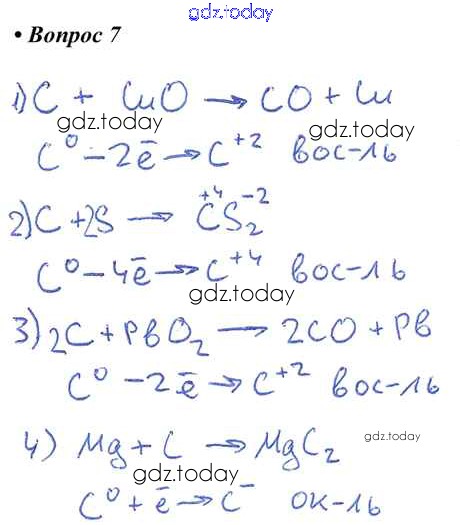 gdz.today
• Вопрос 7
1) C + CuO → CO + Cu
gdz.today gdz.today
C⁰ – 2ē → C⁺² вос-ль
2) C + 2S → C⁺⁴S₂⁻²
C⁰ – 4ē → C⁺⁴ вос-ль
gdz.today
3) 2C + PbO₂ → 2CO + Pb
C⁰ – 2ē → C⁺² вос-ль
4) Mg + C → MgC₂
gdz.today
gdz.today
C⁰ + ē → C⁻ ок-ль